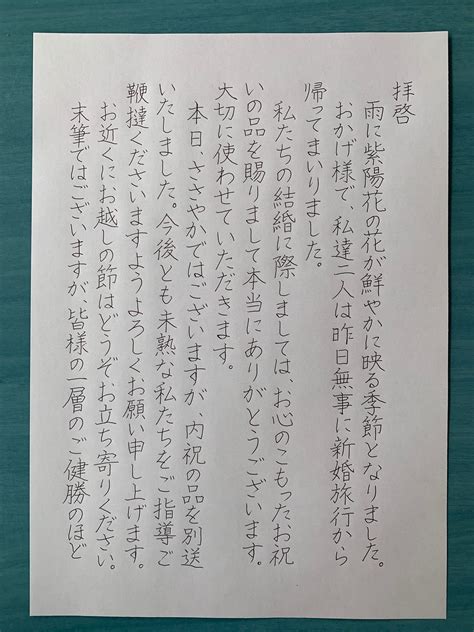 拝啓
雨に紫陽花の花が鮮やかに映る季節となりました。
おかげ様で、私達二人は昨日無事に新婚旅行から
帰ってまいりました。
私たちの結婚に際しましては、お心のこもったお祝
いの品を賜りまして本当にありがとうございます。
大切に使わせていただきます。
本日、ささやかではございますが、内祝の品を別送
いたしました。今後とも未熟な私たちをご指導ご
鞭撻くださいますようよろしくお願い申し上げます。
お近くにお越しの節はどうぞお立ち寄りください。
末筆ではございますが、皆様の一層のご健勝のほど